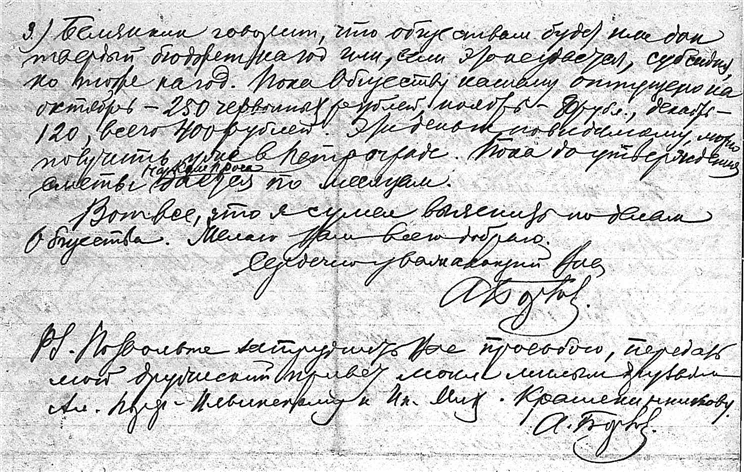 3.) Белякин говорит, что обществам будет или дан
твердый бюджет на год или, если это не удастся, субсидия
но тоже на год. Пока Обществу нашему отпущено на
октябрь – 250 червонных рублей, ноябрь – рубл., декабрь –
120, всего 400 рублей. Эти деньги повидимому, можно
получить уже в Петрограде. Пока до утверждения
сметы Наркомпроса дается по месяцам.
Вот все, что я сумел выяснить по делам
Общества. Желаю Вам всего доброго.
Сердечно уважающий Вас
А. 
PS. Позвольте затруднить Вас просьбою, передать
мой дружеский привет моим милым друзьям
Ал. Ильинскому и Ин. Мих. Крашенинникову.
А.